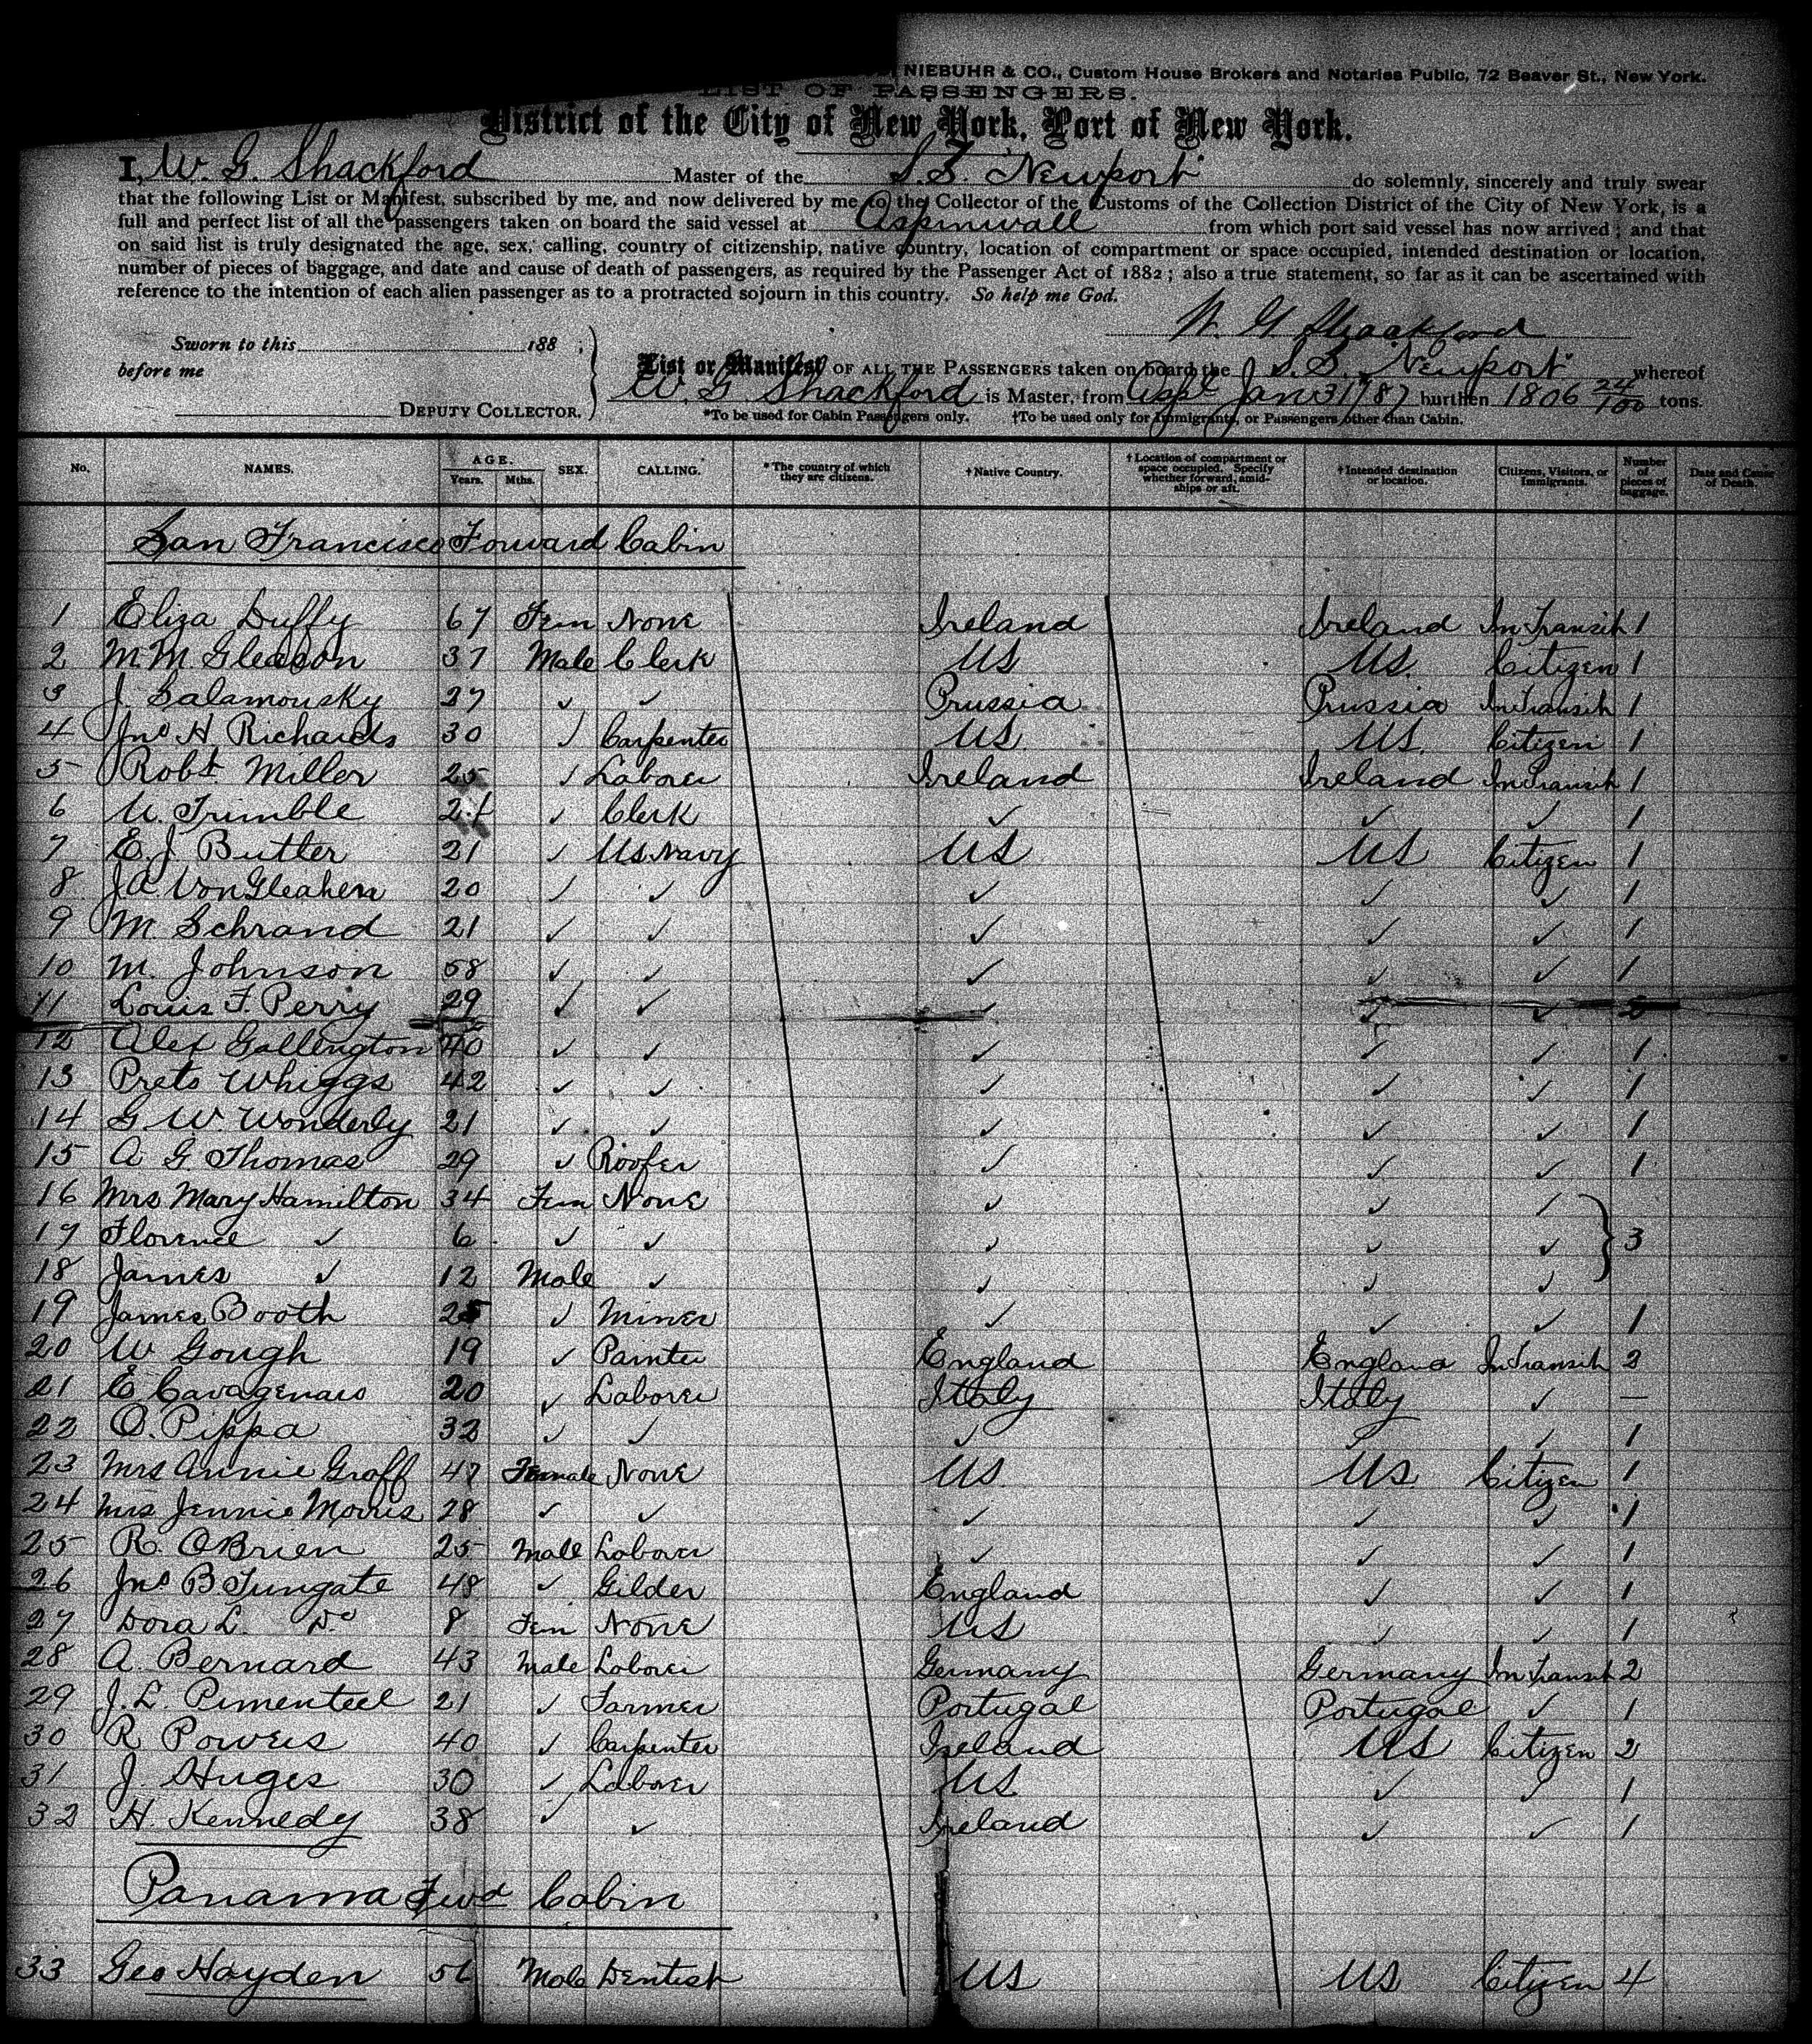 NIEBUHR & CO., Custom House Brokers and Notaries Public, 72 Beaver St., New York.
LIST OF PASSENGERS.
District of the City of New York, Port of New York.
I, W. G. Shackford Master of the S.S. Newport do solemnly, sincerely and truly swear
that the following List or Manifest, subscribed by me, and now delivered by me to the Collector of the Customs of the Collection District of the City of New York, is a
full and perfect list of all the passengers taken on board the said vessel at Aspinwall from which port said vessel has now arrived; and that
on said list is truly designated the age, sex, calling, country of citizenship, native country, location of compartment or space occupied, intended destination or location,
number of pieces of baggage, and date and cause of death of passengers, as required by the Passenger Act of 1882; also a true statement, so far as it can be ascertained with
reference to the intention of each alien passenger as to a protracted sojourn in this country. So help me God.
W. G Shackford
Sworn to this 188 ;
before me
DEPUTY COLLECTOR.
List or Manifest OF ALL THE PASSENGERS taken on board the S.S. Newport whereof
W. G Shackford is Master, from Aspl Jan 31/87 burthen 1806 24/100 tons.
*To be used for Cabin Passengers only. †To be used only for Immigrants, or Passengers other than Cabin.
No. NAMES. AGE. Years. Mths. SEX. CALLING. *The country of which they are citizens. †Native Country. †Location of compartment or space occupied. Specify whether forward, amidships or aft. †Intended destination or location. Citizens, Visitors, or Immigrants. Number of pieces of baggage. Date and Cause of Death.
San Francisco Forward Cabin
1 Eliza Duffy 67 Fem None Ireland Ireland In Transit 1
2 M M Gleason 37 Male Clerk US US. Citizen 1
3 J. Salamousky 27 ✓ ✓ Prussia Prussia In Transit 1
4 Jno H Richards 30 ✓ Carpenter US. US. Citizen 1
5 Robt Miller 25 ✓ Laborer Ireland Ireland In Transit 1
6 U. Trimble ✓ Clerk ✓ ✓ ✓ 1
7 E. J. Butler 21 ✓ US Navy US US Citizen 1
8 J A. Von Gleahen 20 ✓ ✓ ✓ ✓ ✓ 1
9 M Schrand 21 ✓ ✓ ✓ ✓ ✓ 1
10 M. Johnson 58 ✓ ✓ ✓ ✓ ✓ 1
11 Louis F. Perry 29 ✓ ✓ ✓ ✓ ✓
12 Alex Gallington 40 ✓ ✓ ✓ ✓ ✓ 1
13 Prets Whiggs 42 ✓ ✓ ✓ ✓ ✓ 1
14 G W. Wonderly 21 ✓ ✓ ✓ ✓ ✓ 1
15 A G. Thomas 29 ✓ Roofer ✓ ✓ ✓ 1
16 Mrs Mary Hamilton 34 Fem None ✓ ✓ ✓
17 Florence ✓ 6 ✓ ✓ ✓ ✓ ✓ 3
18 James ✓ 12 Male ✓ ✓ ✓ ✓
19 James Booth 25 ✓ Miner ✓ ✓ ✓ 1
20 W Gough 19 ✓ Painter England England In Transit 2
21 E Cavagenais 20 ✓ Laborer Italy Italy ✓ —
22 O. Pippa 32 ✓ ✓ ✓ ✓ ✓ 1
23 Mrs Annie Graff 47 Female None US US Citizen 1
24 Mrs Jennie Morris 28 ✓ ✓ ✓ ✓ ✓ 1
25 R. OBrien 25 Male Laborer ✓ ✓ ✓ 1
26 Jno B Tungate 48 ✓ Gilder England ✓ ✓ 1
27 Dora L. Do 8 Fem None US ✓ ✓ 1
28 A. Bernard 43 Male Laborer Germany Germany In Transit 2
29 J. L. Pimenteel 21 ✓ Farmer Portugal Portugal ✓ 1
30 R Powers 40 ✓ Carpenter Ireland US Citizen 2
31 J. Huges 30 ✓ Laborer US ✓ ✓ 1
32 H. Kennedy 38 ✓ ✓ Ireland ✓ ✓ 1
Panama Fwd Cabin
33 Geo Hayden Male Dentist US US Citizen 4